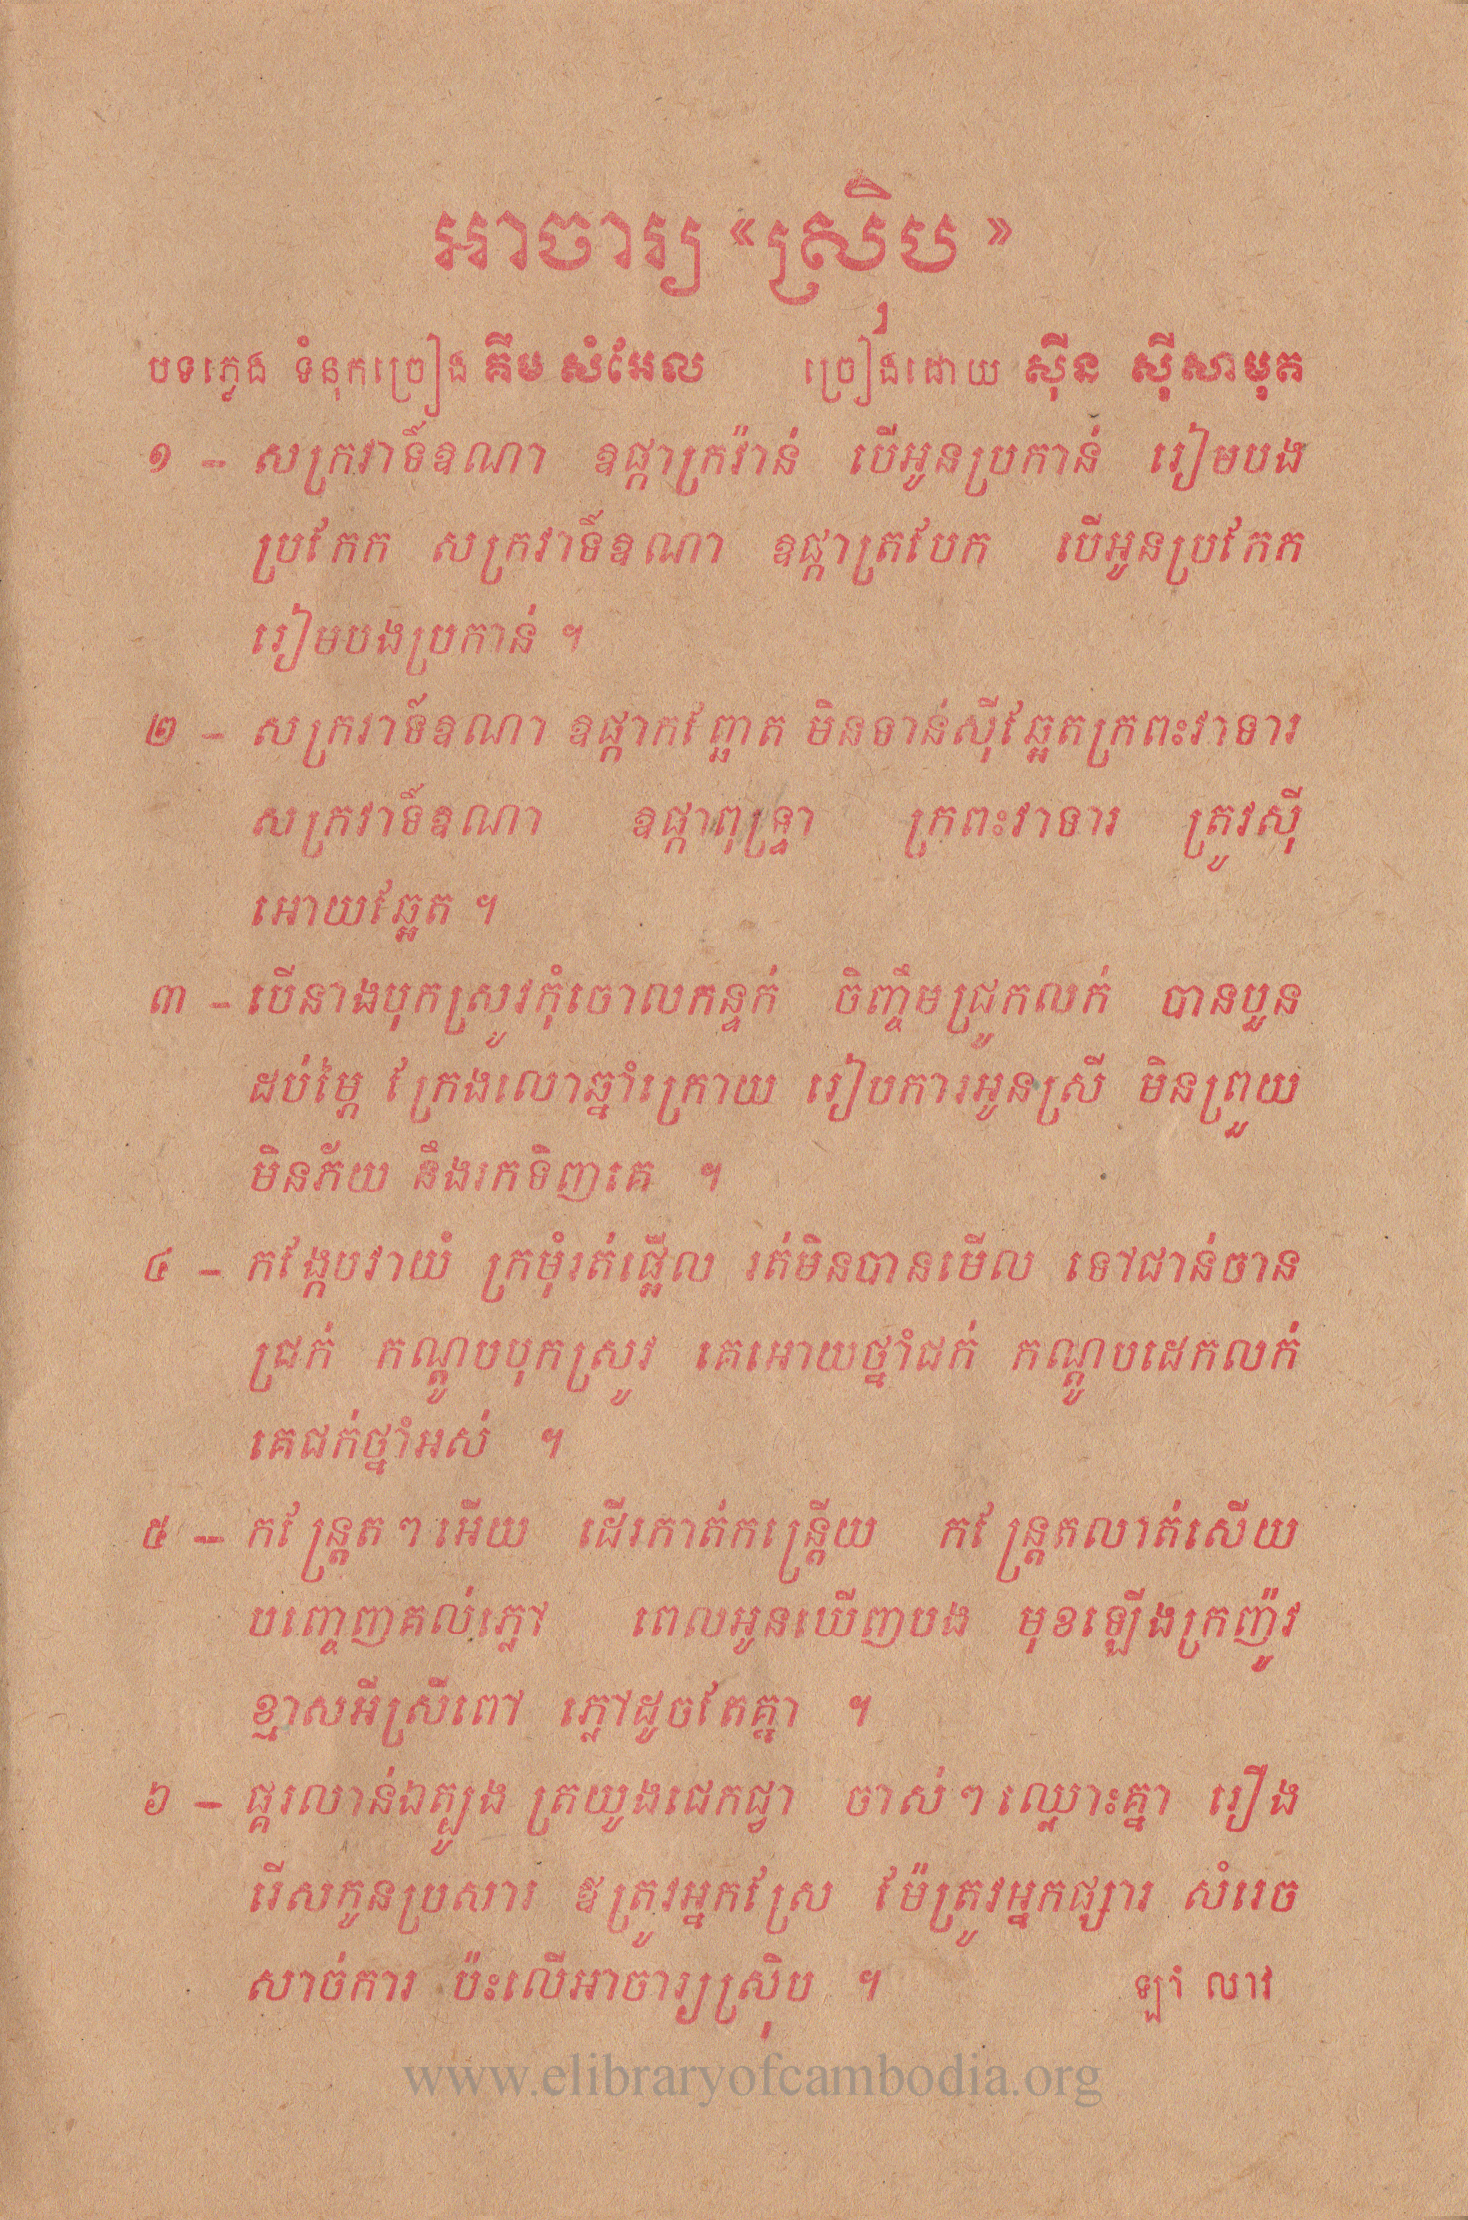 អាចារ្យ «ស្រ៊ិប»
បទភ្លេង ទំនុកច្រៀង គឹម សំអែល ច្រៀងដោយ ស៊ីន ស៊ីសាមុត
១ - សក្រវាទិ៍ឧណា ឧផ្កាក្រវ៉ាន់ បើអូនប្រកាន់ រៀមបង
ប្រកែក សក្រវាទិ៍ឧណា ឧផ្កាត្របែក បើអូនប្រកែក
រៀមបងប្រកាន់ ។
២ - សក្រវាទិ៍ឧណា ឧផ្កាកញ្ឆែត មិនទាន់ស៊ីឆ្អែតក្រពះវាទារ
សក្រវាទិ៍ឧណា ឧផ្កាពុទ្រ្ទា ក្រពះវាទារ ត្រូវស៊ី
អោយឆ្អែត ។
៣ - បើនាងបុកស្រូវកុំចោលកន្ទក់ ចិញ្ចឹមជ្រូកលក់ បានបួន
ដប់ម្ភៃ ក្រែងលោឆ្នាំក្រោយ រៀបការអូនស្រី មិនព្រួយ
មិនភ័យ នឹងរកទិញគេ ។
៤ - កង្កែបវាយំ ក្រមុំរត់ផ្អើល រត់មិនបានមើល ទៅជាន់ចាន
ជ្រក់ កណ្តូបបុកស្រូវ គេអោយថ្នាំជក់ កណ្តូបដេកលក់
គេជក់ថ្នាំអស់ ។
៥ - កន្ត្រែតៗអើយ ដើរកាត់កន្ត្រើយ កន្ត្រែតលាត់សើយ
បញ្ចេញគល់ភ្លៅ ពេលអូនឃើញបង មុខឡើងក្រញ៉ូវ
ខ្មាសអីស្រីពៅ ភ្លៅដូចតែគ្នា ។
៦ - ផ្គរលាន់ឯត្បូង ត្រយូងជេកជ្វា ចាស់ៗឈ្លោះគ្នា រឿង
រើសកូនប្រសារ ឪត្រូវអ្នកស្រែ ម៉ែត្រូវអ្នកផ្សារ សំរេច
សាច់ការ ប៉ះលើអាចារ្យស្រ៊ិប ។ ឡាំ លាវ
www.elibraryofcambodia.org